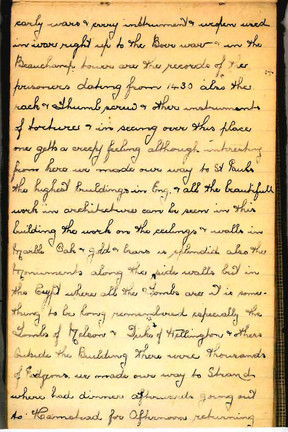 early wars & every instrument & wepon used
in war right up to the Boer war & in the
Beauchamp tower are the records of
prisoners dating from 1430 also the
rack & Thumb screw & other instruments
of tortures & in seeing over this place
one gets a creepy feeling although intresting
from here we made our way to St Pauls
the highest buildings in Eng. & all the beautifull
work in architecture can be seen in this
building the work on the ceelings & walls in
Marble Oak & gold & brass is splendid also the
Monuments along the side walls but in
the Crypt where all the Tombs are it is some-
thing to be long remembered especially the
Tombs of Nelson & Duke of Wellington & others
outside the Building there were thousands
of Pidgens. we made our way to Strand
where had dinner afterwards going out
to Hamstead for Afternoon returning